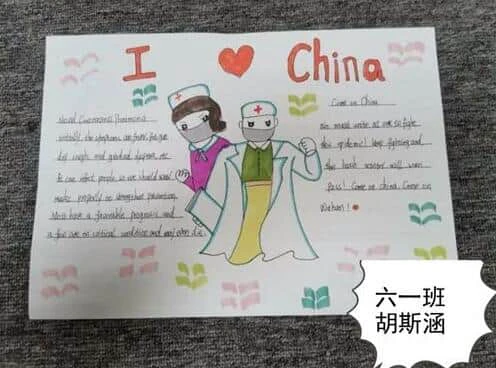 I ❤ China
Novel Coronavirus Pneumonia
initially the symptoms are fever, fatigue
dry cough and gradual dyspnea, etc.
It can infect people, so we should wear
masks properly to strengthen prevention.
Most have a favorable prognosis and
a few are in critical condition and may even die.
Come on China
We must unite as one to fight
this epidemic! Keep fighting and
this battle will win
Best! Come on China Come on
Wuhan!
六一班
胡斯涵